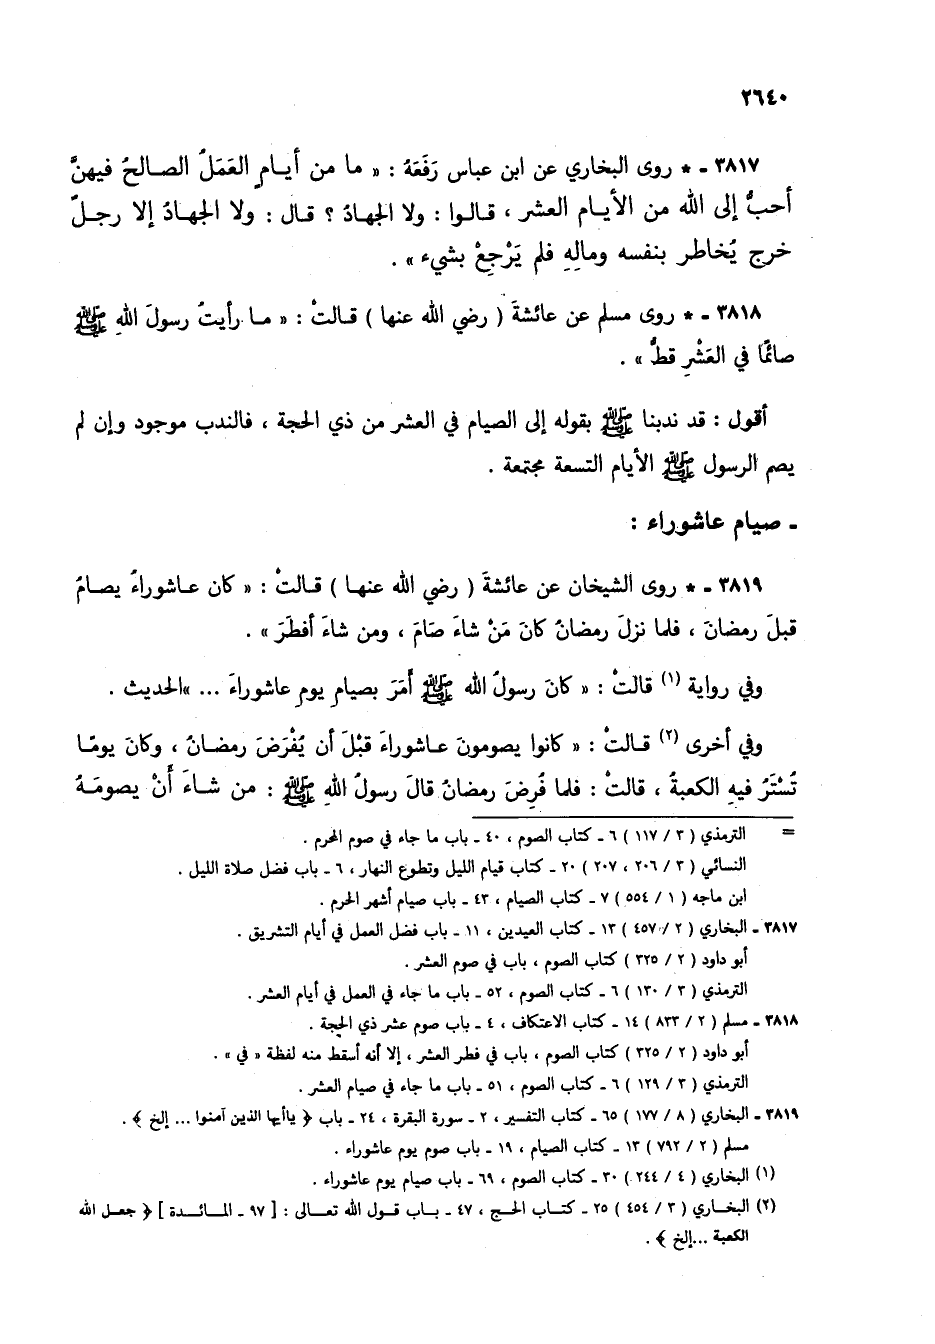 ٢٦٤٠
٣٨١٧ ـ * روى البخاري عن ابن عباس رَفَعَهُ : « ما من أيامٍ العَمَلُ الصالحُ فيهنَّ
أحبُّ إلى الله من الأيام العشر ، قالوا : ولا الجهادُ ؟ قال : ولا الجهادُ إلا رجلٌ
خرج يُخاطر بنفسه ومالِهِ فلم يَرْجِعْ بشيء » .
٣٨١٨ ـ * روى مسلم عن عائشةَ ( رضي الله عنها ) قالتْ : « ما رأيتُ رسولَ اللهِ ﷺ
صائمًا في العَشْرِ قطُّ » .
أقول : قد ندبنا ﷺ بقوله إلى الصيام في العشر من ذي الحجة ، فالندب موجود وإن لم
يصم الرسول ﷺ الأيام التسعة مجتمعة .
ـ صيام عاشوراء :
٣٨١٩ ـ * روى الشيخان عن عائشةَ ( رضي الله عنها ) قالتْ : « كان عاشوراءُ يصامُ
قبلَ رمضانَ ، فلما نزلَ رمضانُ كانَ مَنْ شاءَ صَامَ ، ومن شاءَ أفطَرَ » .
وفي رواية (١) قالتْ : « كانَ رسولُ الله ﷺ أَمَرَ بصيامِ يومِ عاشوراءَ ... »الحديث .
وفي أخرى (٢) قالتْ : « كانوا يصومونَ عاشوراءَ قبْلَ أن يُفْرَضَ رمضانُ ، وكانَ يومًا
تُسْتَرُ فيهِ الكعبةُ ، قالتْ : فلما فُرِضَ رمضانُ قالَ رسولُ اللهِ ﷺ : من شاءَ أَنْ يصومَهُ
= الترمذي ( ٣ / ١١٧ ) ٦ ـ كتاب الصوم ، ٤٠ ـ باب ما جاء في صوم المحرم .
النسائي ( ٣ / ٢٠٦ ، ٢٠٧ ) ٢٠ ـ كتاب قيام الليل وتطوع النهار ، ٦ ـ باب فضل صلاة الليل .
ابن ماجه ( ١ / ٥٥٤ ) ٧ ـ كتاب الصيام ، ٤٣ ـ باب صيام أشهر الحرم .
٣٨١٧ ـ البخاري ( ٢ / ٤٥٧ ) ١٣ ـ كتاب العيدين ، ١١ ـ باب فضل العمل في أيام التشريق .
أبو داود ( ٢ / ٣٢٥ ) كتاب الصوم ، باب في صوم العشر .
الترمذي ( ٣ / ١٣٠ ) ٦ ـ كتاب الصوم ، ٥٢ ـ باب ما جاء في العمل في أيام العشر .
٣٨١٨ ـ مسلم ( ٢ / ٨٣٣ ) ١٤ ـ كتاب الاعتكاف ، ٤ ـ باب صوم عشر ذي الحجة .
أبو داود ( ٢ / ٣٢٥ ) كتاب الصوم ، باب في فطر العشر ، إلا أنه أسقط منه لفظة « في » .
الترمذي ( ٣ / ١٢٩ ) ٦ ـ كتاب الصوم ، ٥١ ـ باب ما جاء في صيام العشر .
٣٨١٩ ـ البخاري ( ٨ / ١٧٧ ) ٦٥ ـ كتاب التفسير ، ٢ ـ سورة البقرة ، ٢٤ ـ باب ﴿ ياأيها الذين آمنوا ... إلخ ﴾ .
مسلم ( ٢ / ٧٩٢ ) ١٣ ـ كتاب الصيام ، ١٩ ـ باب صوم يوم عاشوراء .
(١) البخاري ( ٤ / ٢٤٤ ) ٣٠ ـ كتاب الصوم ، ٦٩ ـ باب صيام يوم عاشوراء .
(٢) البخاري ( ٣ / ٤٥٤ ) ٢٥ ـ كتاب الحج ، ٤٧ ـ باب قول الله تعالى : [ ٩٧ ـ المائدة ] ﴿ جعل الله
الكعبة ...إلخ ﴾ .